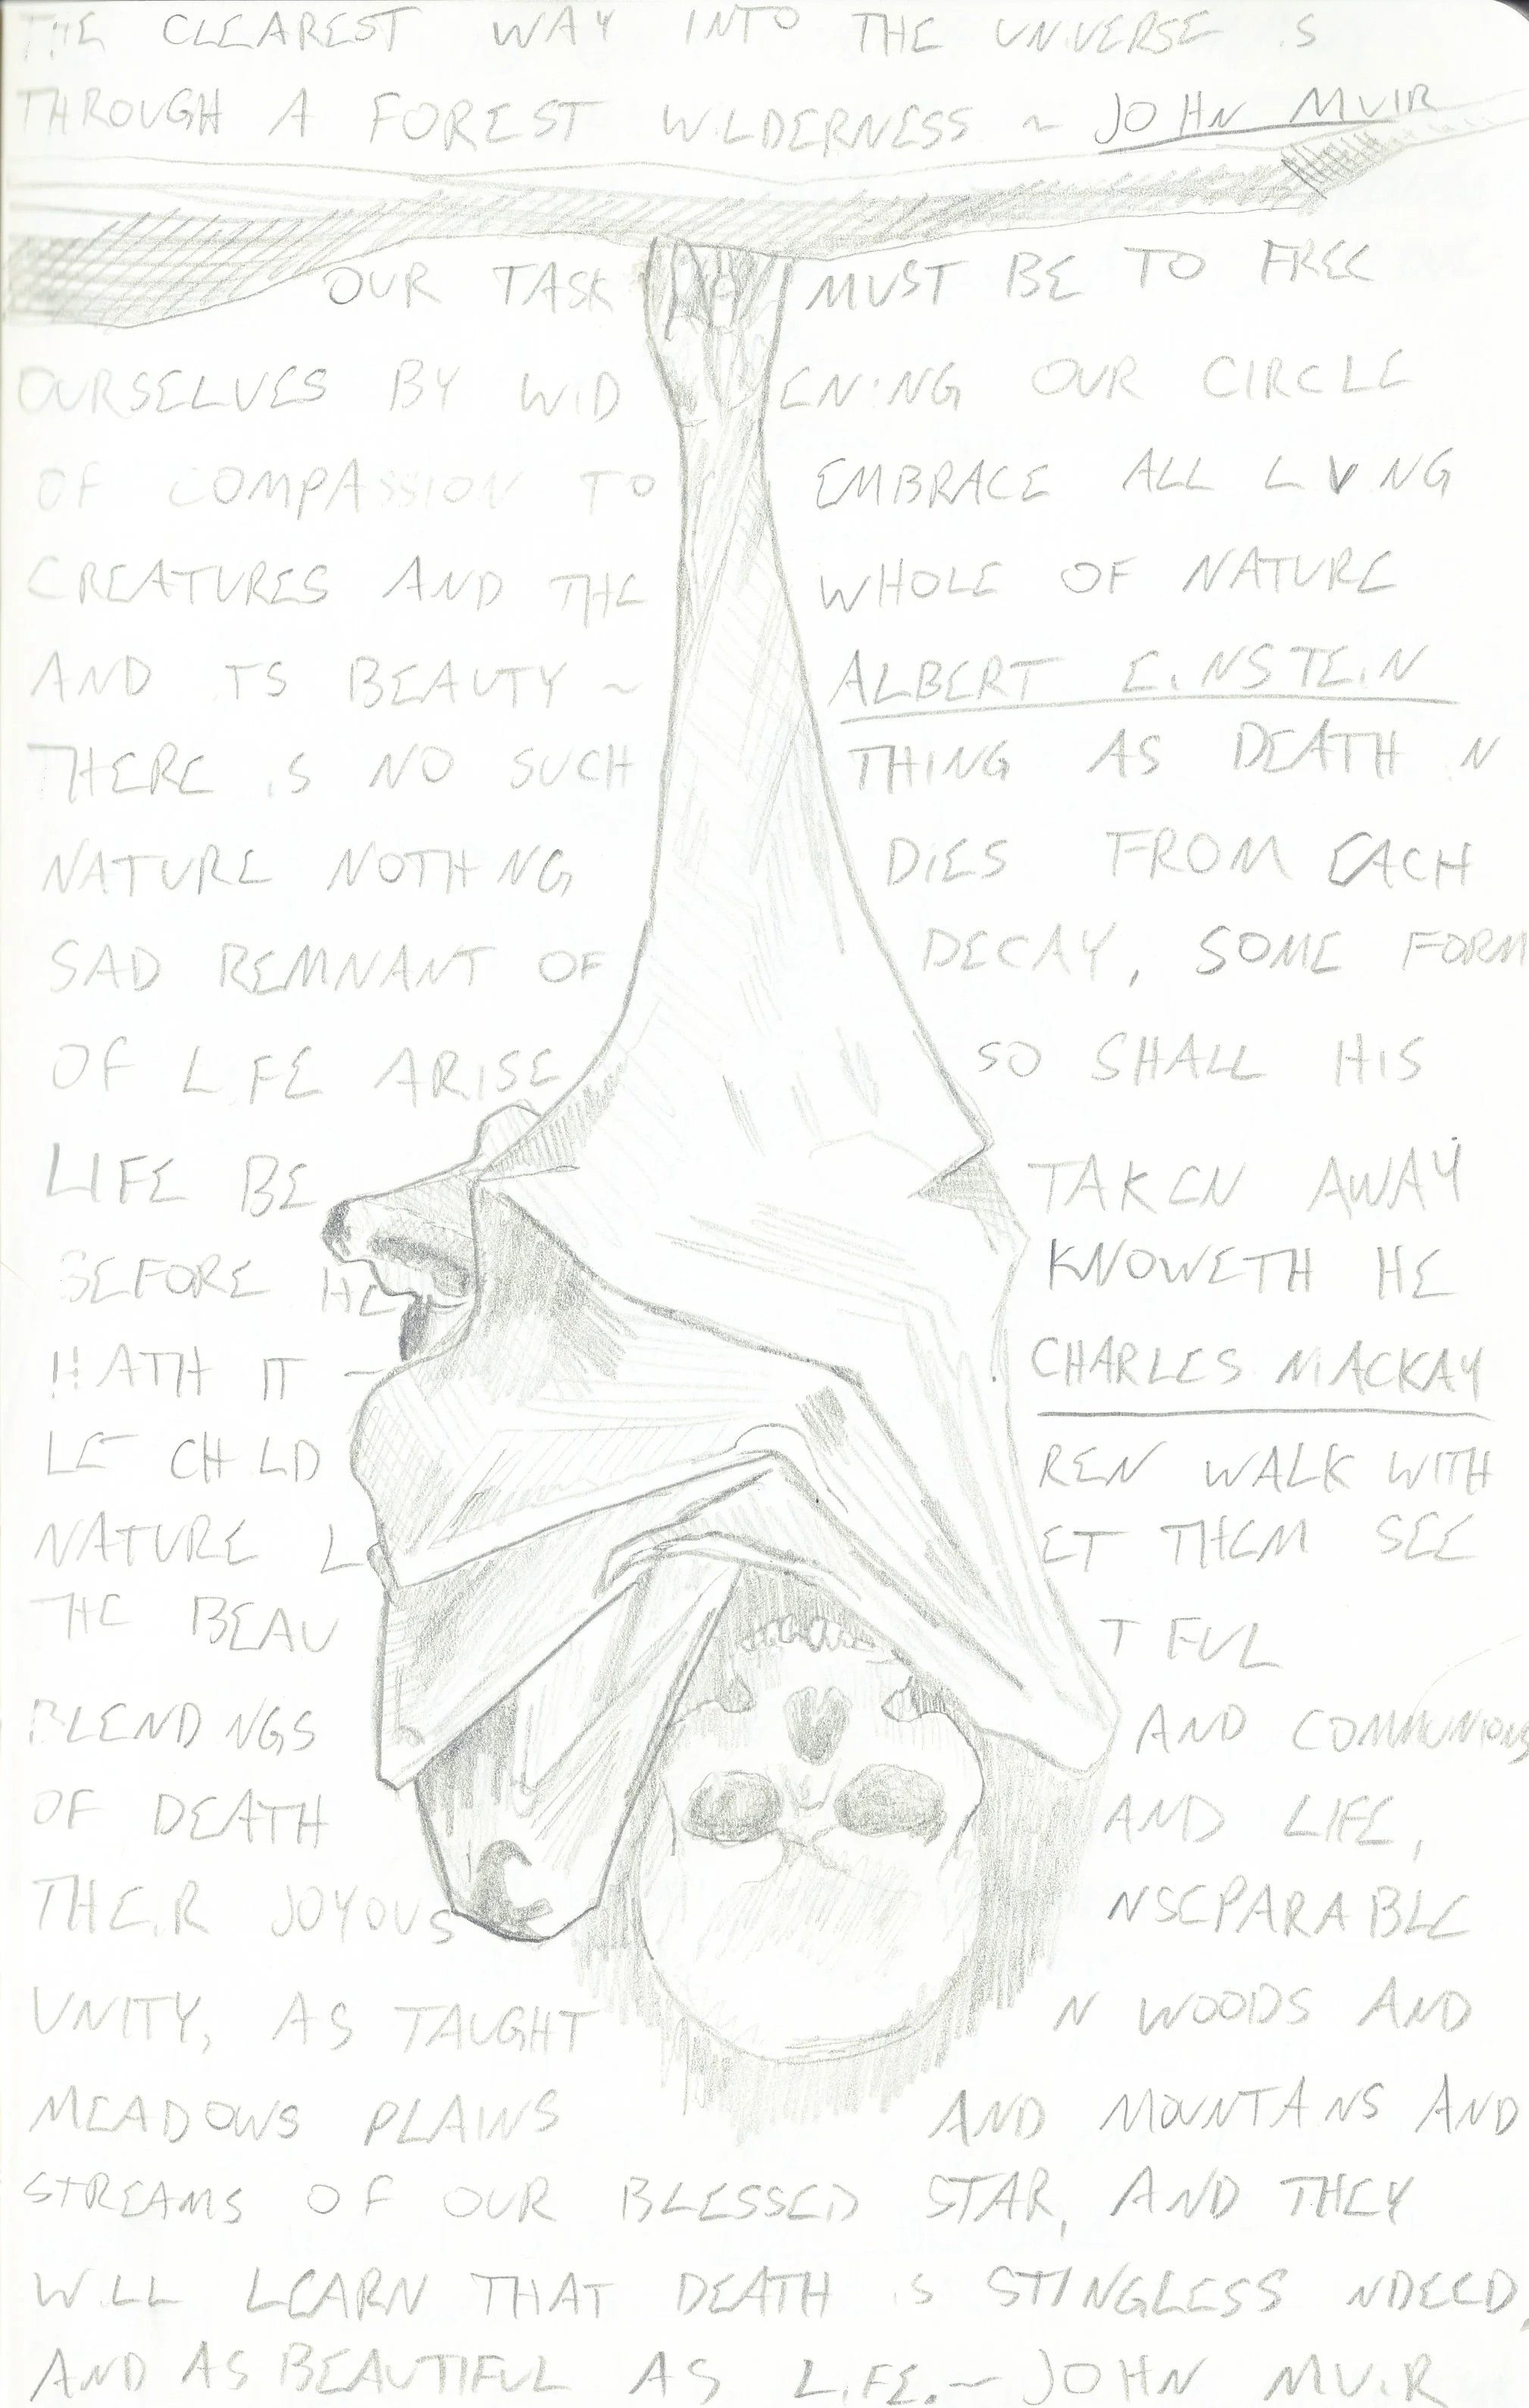 THE CLEAREST WAY INTO THE UNIVERSE IS
THROUGH A FOREST WILDERNESS ~ JOHN MUIR
OUR TASK MUST BE TO FREE
OURSELVES BY WID ENING OUR CIRCLE
OF COMPASSION TO EMBRACE ALL LIVING
CREATURES AND THE WHOLE OF NATURE
AND ITS BEAUTY ~ ALBERT EINSTEIN
THERE IS NO SUCH THING AS DEATH IN
NATURE NOTHING DIES FROM EACH
SAD REMNANT OF DECAY, SOME FORM
OF LIFE ARISE SO SHALL HIS
LIFE BE TAKEN AWAY
BEFORE HE KNOWETH HE
HATH IT ~ CHARLES MACKAY
LET CHILD REN WALK WITH
NATURE L ET THEM SEE
THE BEAU TIFUL
BLENDINGS AND COMMUNIONS
OF DEATH AND LIFE,
THEIR JOYOUS INSEPARABLE
UNITY, AS TAUGHT IN WOODS AND
MEADOWS PLAINS AND MOUNTAINS AND
STREAMS OF OUR BLESSED STAR, AND THEY
WILL LEARN THAT DEATH IS STINGLESS INDEED,
AND AS BEAUTIFUL AS LIFE.~ JOHN MUIR